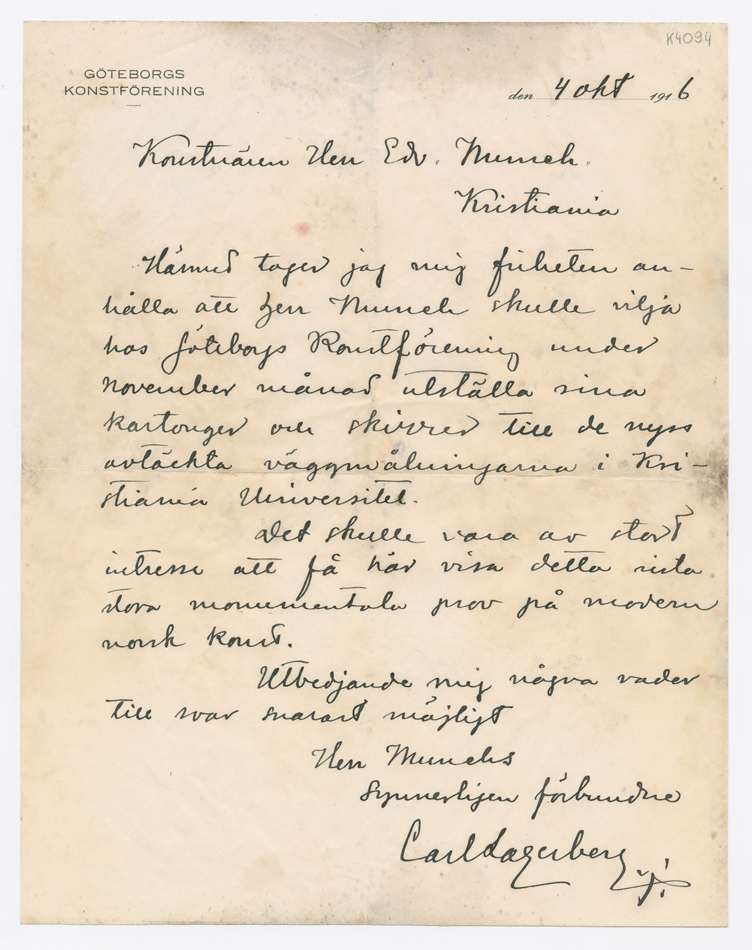 K4094
GÖTEBORGS
KONSTFÖRENING
den 4 okt 1916
Konstnären Herr Edv. Munch.
Kristiania
Härmed tager jag mig friheten an-
hålla att Herr Munch skulle vilja
hos Göteborgs Konstförening under
november månad utställa sina
kartonger och skisser till de nyss
avtäckta väggmålningarna i Kri-
stiania Universitet.
Det skulle vara av stort
intresse att få här visa detta sista
stora monumentala prov på modern
norsk konst.
Utbedjande mig några rader
till svar snarast möjligt
Herr Munchs
synnerligen förbundne
Carl Lagerberg